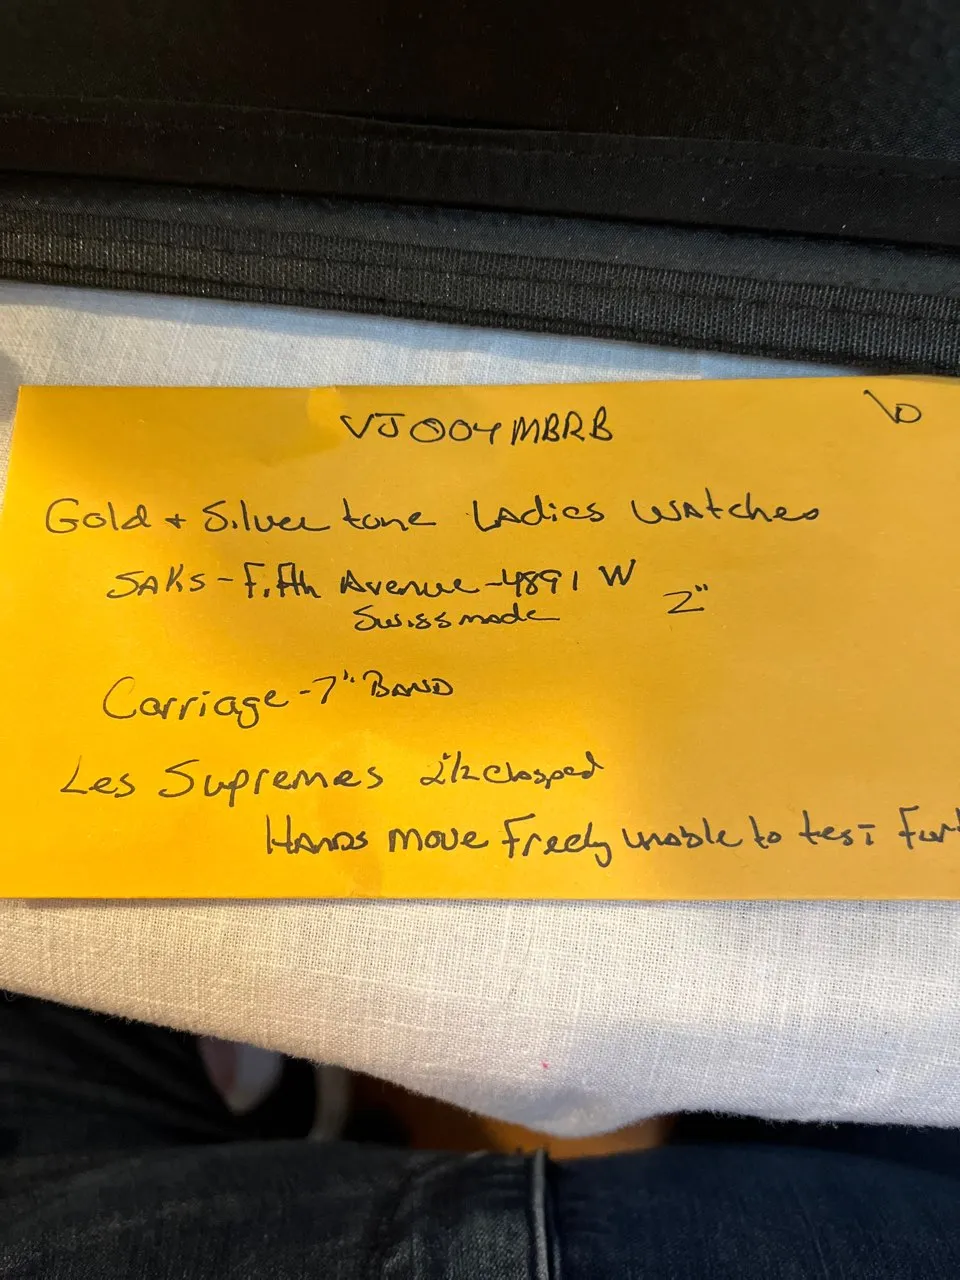 VJ004MBRB
10
Gold + Silver tone Ladies Watches
SAKS - Fifth Avenue - 4891 W 2"
Swiss made
Carriage - 7" BAND
Les Supremes 2 1/2 clasped
HANDS move Freely unable to test Fur